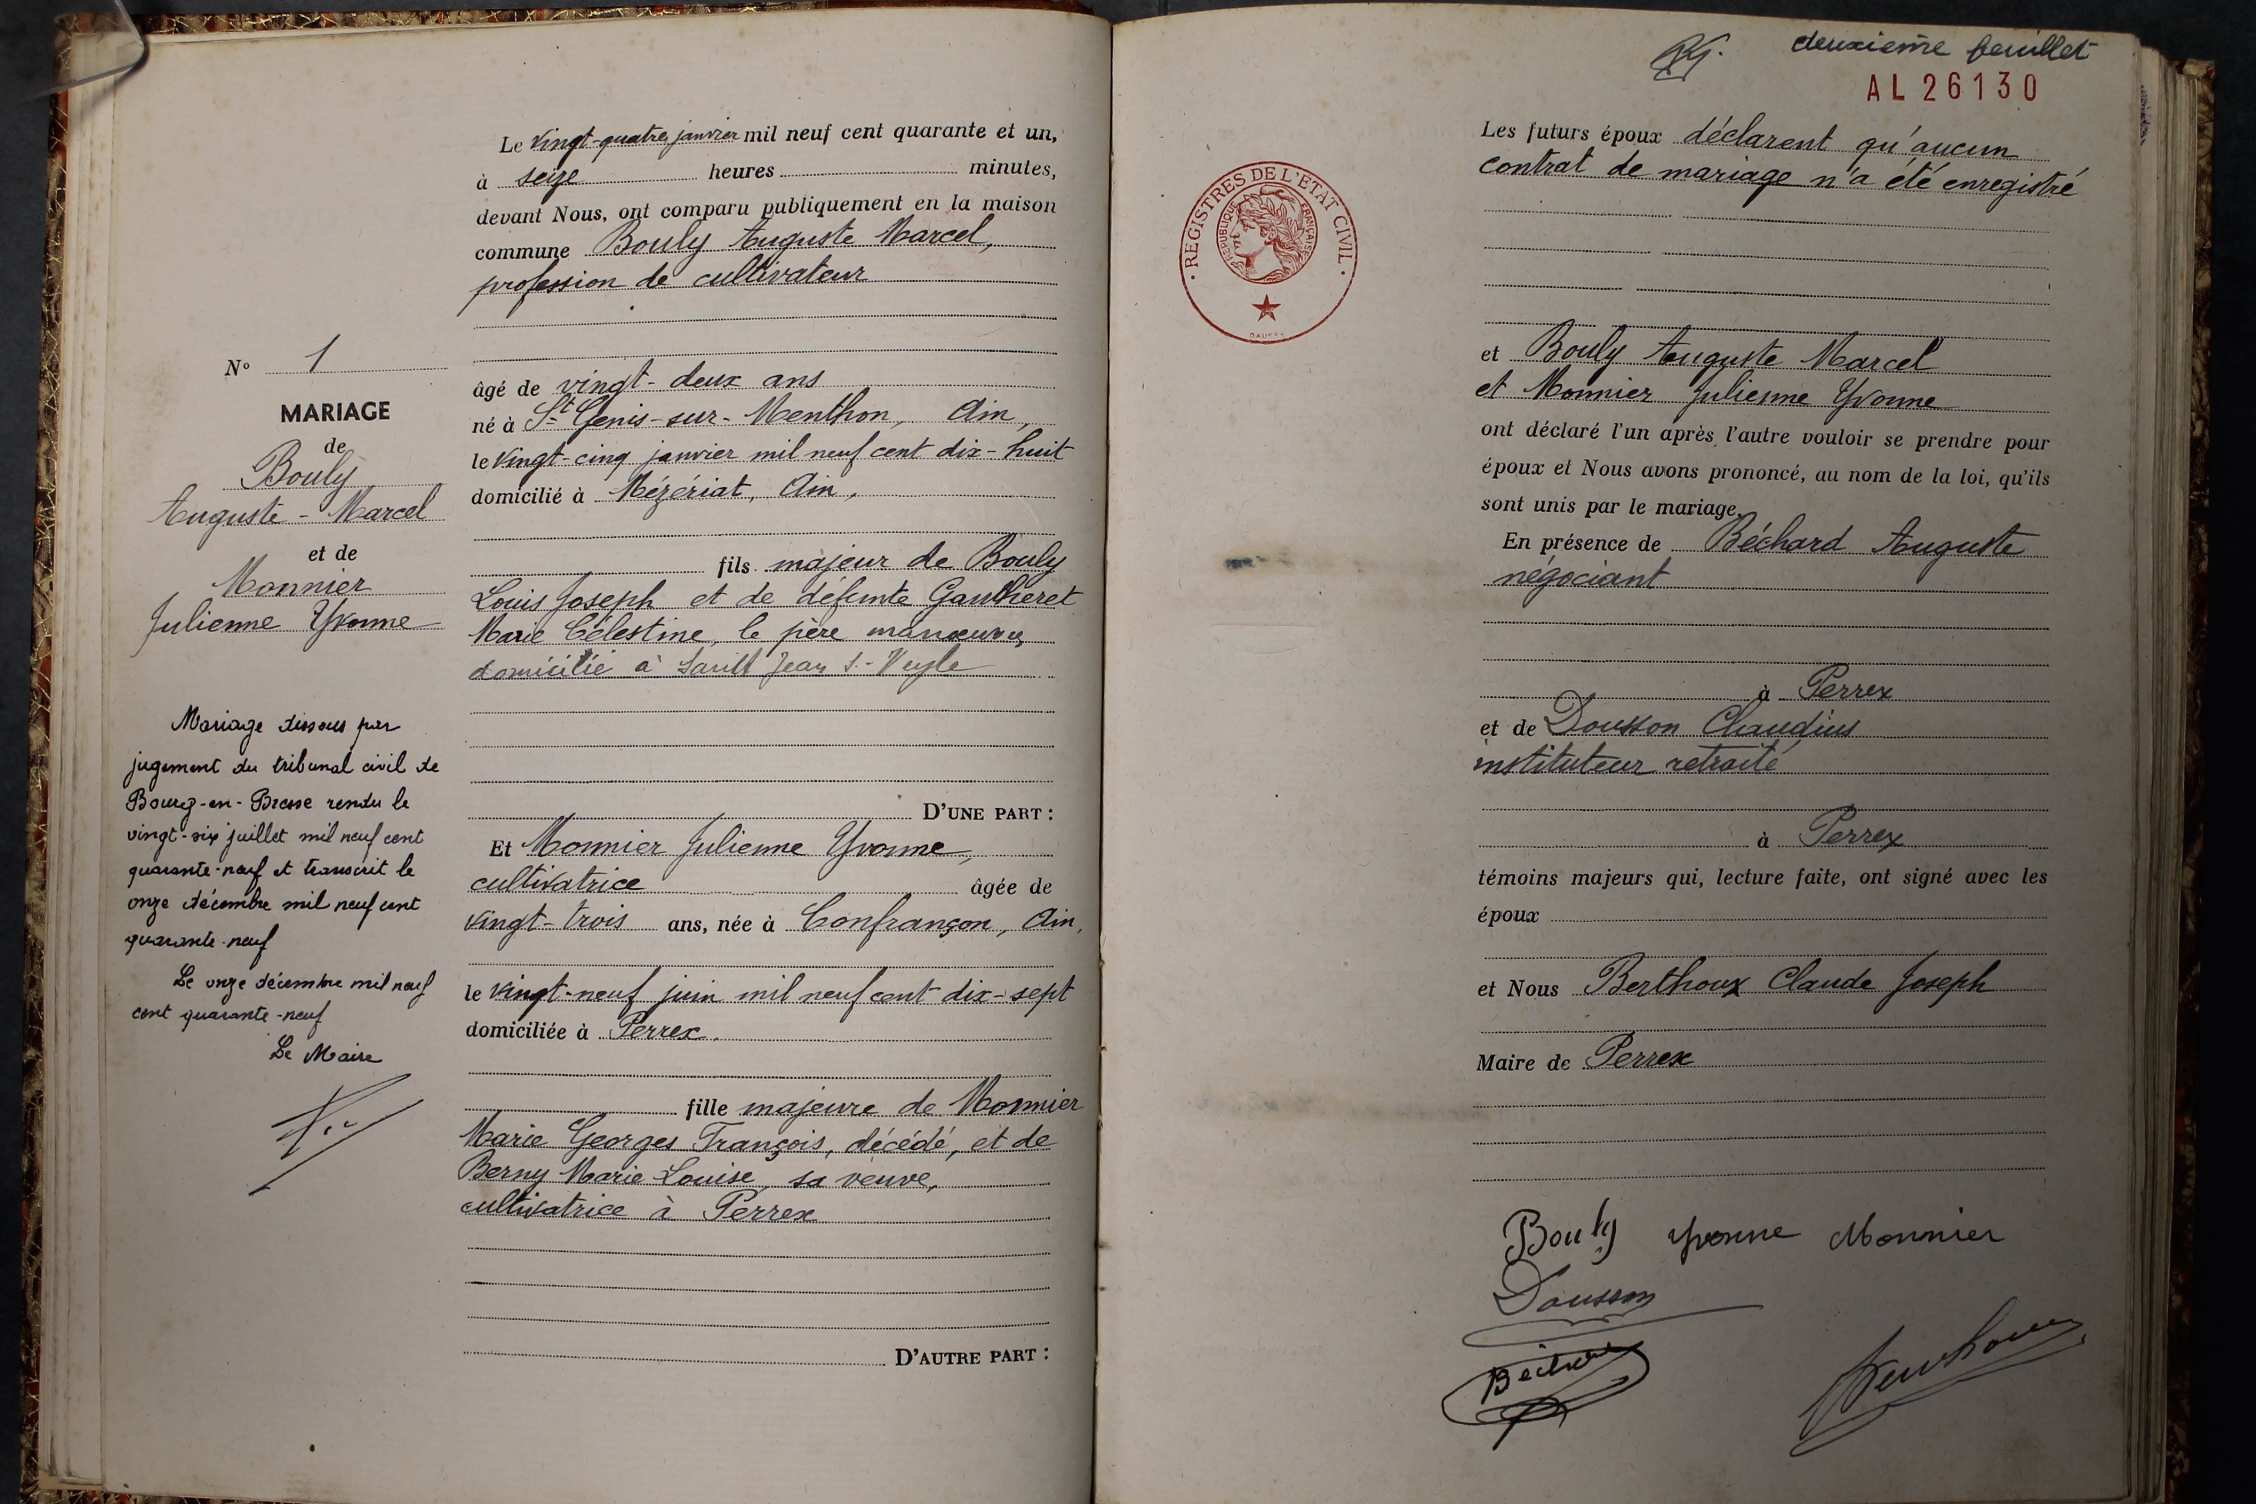 Le vingt-quatre janvier mil neuf cent quarante et un,
à seize heures minutes,
devant Nous, ont comparu publiquement en la maison
commune Bouly Auguste Marcel,
profession de cultivateur
âgé de vingt-deux ans
né à St Genis-sur-Menthon, Ain,
le vingt-cinq janvier mil neuf cent dix-huit
domicilié à Mézériat, Ain,
fils majeur de Bouly
Louis Joseph et de défunte Gautheret
Marie Célestine, le père manœuvre,
domicilié à Saint Jean s.-Veyle
D'UNE PART :
Et Monnier Julienne Yvonne,
cultivatrice âgée de
vingt-trois ans, née à Confrançon, Ain,
le vingt-neuf juin mil neuf cent dix-sept
domiciliée à Perrex.
fille majeure de Monnier
Marie Georges François, décédé, et de
Berny Marie Louise, sa veuve,
cultivatrice à Perrex
D'AUTRE PART :
N° 1
MARIAGE
de
Bouly
Auguste - Marcel
et de
Monnier
Julienne Yvonne
Mariage dissous par
jugement du tribunal civil de
Bourg-en-Bresse rendu le
vingt-six juillet mil neuf cent
quarante-neuf et transcrit le
onze décembre mil neuf cent
quarante-neuf
Le onze décembre mil neuf
cent quarante-neuf
Le Maire
deuxième feuillet
AL 26130
REGISTRES DE L'ÉTAT CIVIL
RÉPUBLIQUE FRANÇAISE
Les futurs époux déclarent qu'aucun
contrat de mariage n'a été enregistré
et Bouly Auguste Marcel
et Monnier Julienne Yvonne
ont déclaré l'un après l'autre vouloir se prendre pour
époux et Nous avons prononcé, au nom de la loi, qu'ils
sont unis par le mariage.
En présence de Béchard Auguste
négociant
à Perrex
et de Dousson Claudius
instituteur retraité
à Perrex
témoins majeurs qui, lecture faite, ont signé avec les
époux
et Nous Berthoux Claude Joseph
Maire de Perrex
Bouly Yvonne Monnier
Dousson
Béchard